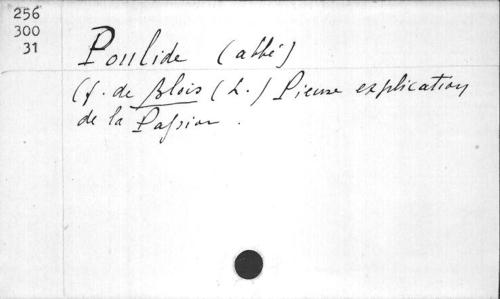 256
300
31
Poulide (abbé)
(f. de Blois (L.) Pieuse explication
de la Passion.